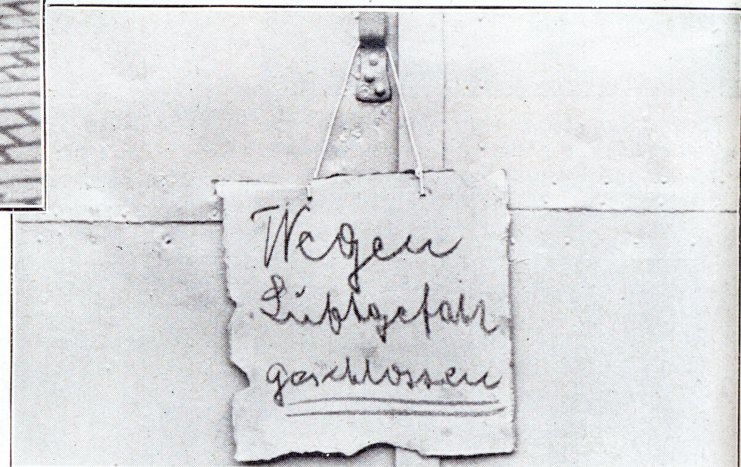 Wegen
Luftgefahr
geschlossen